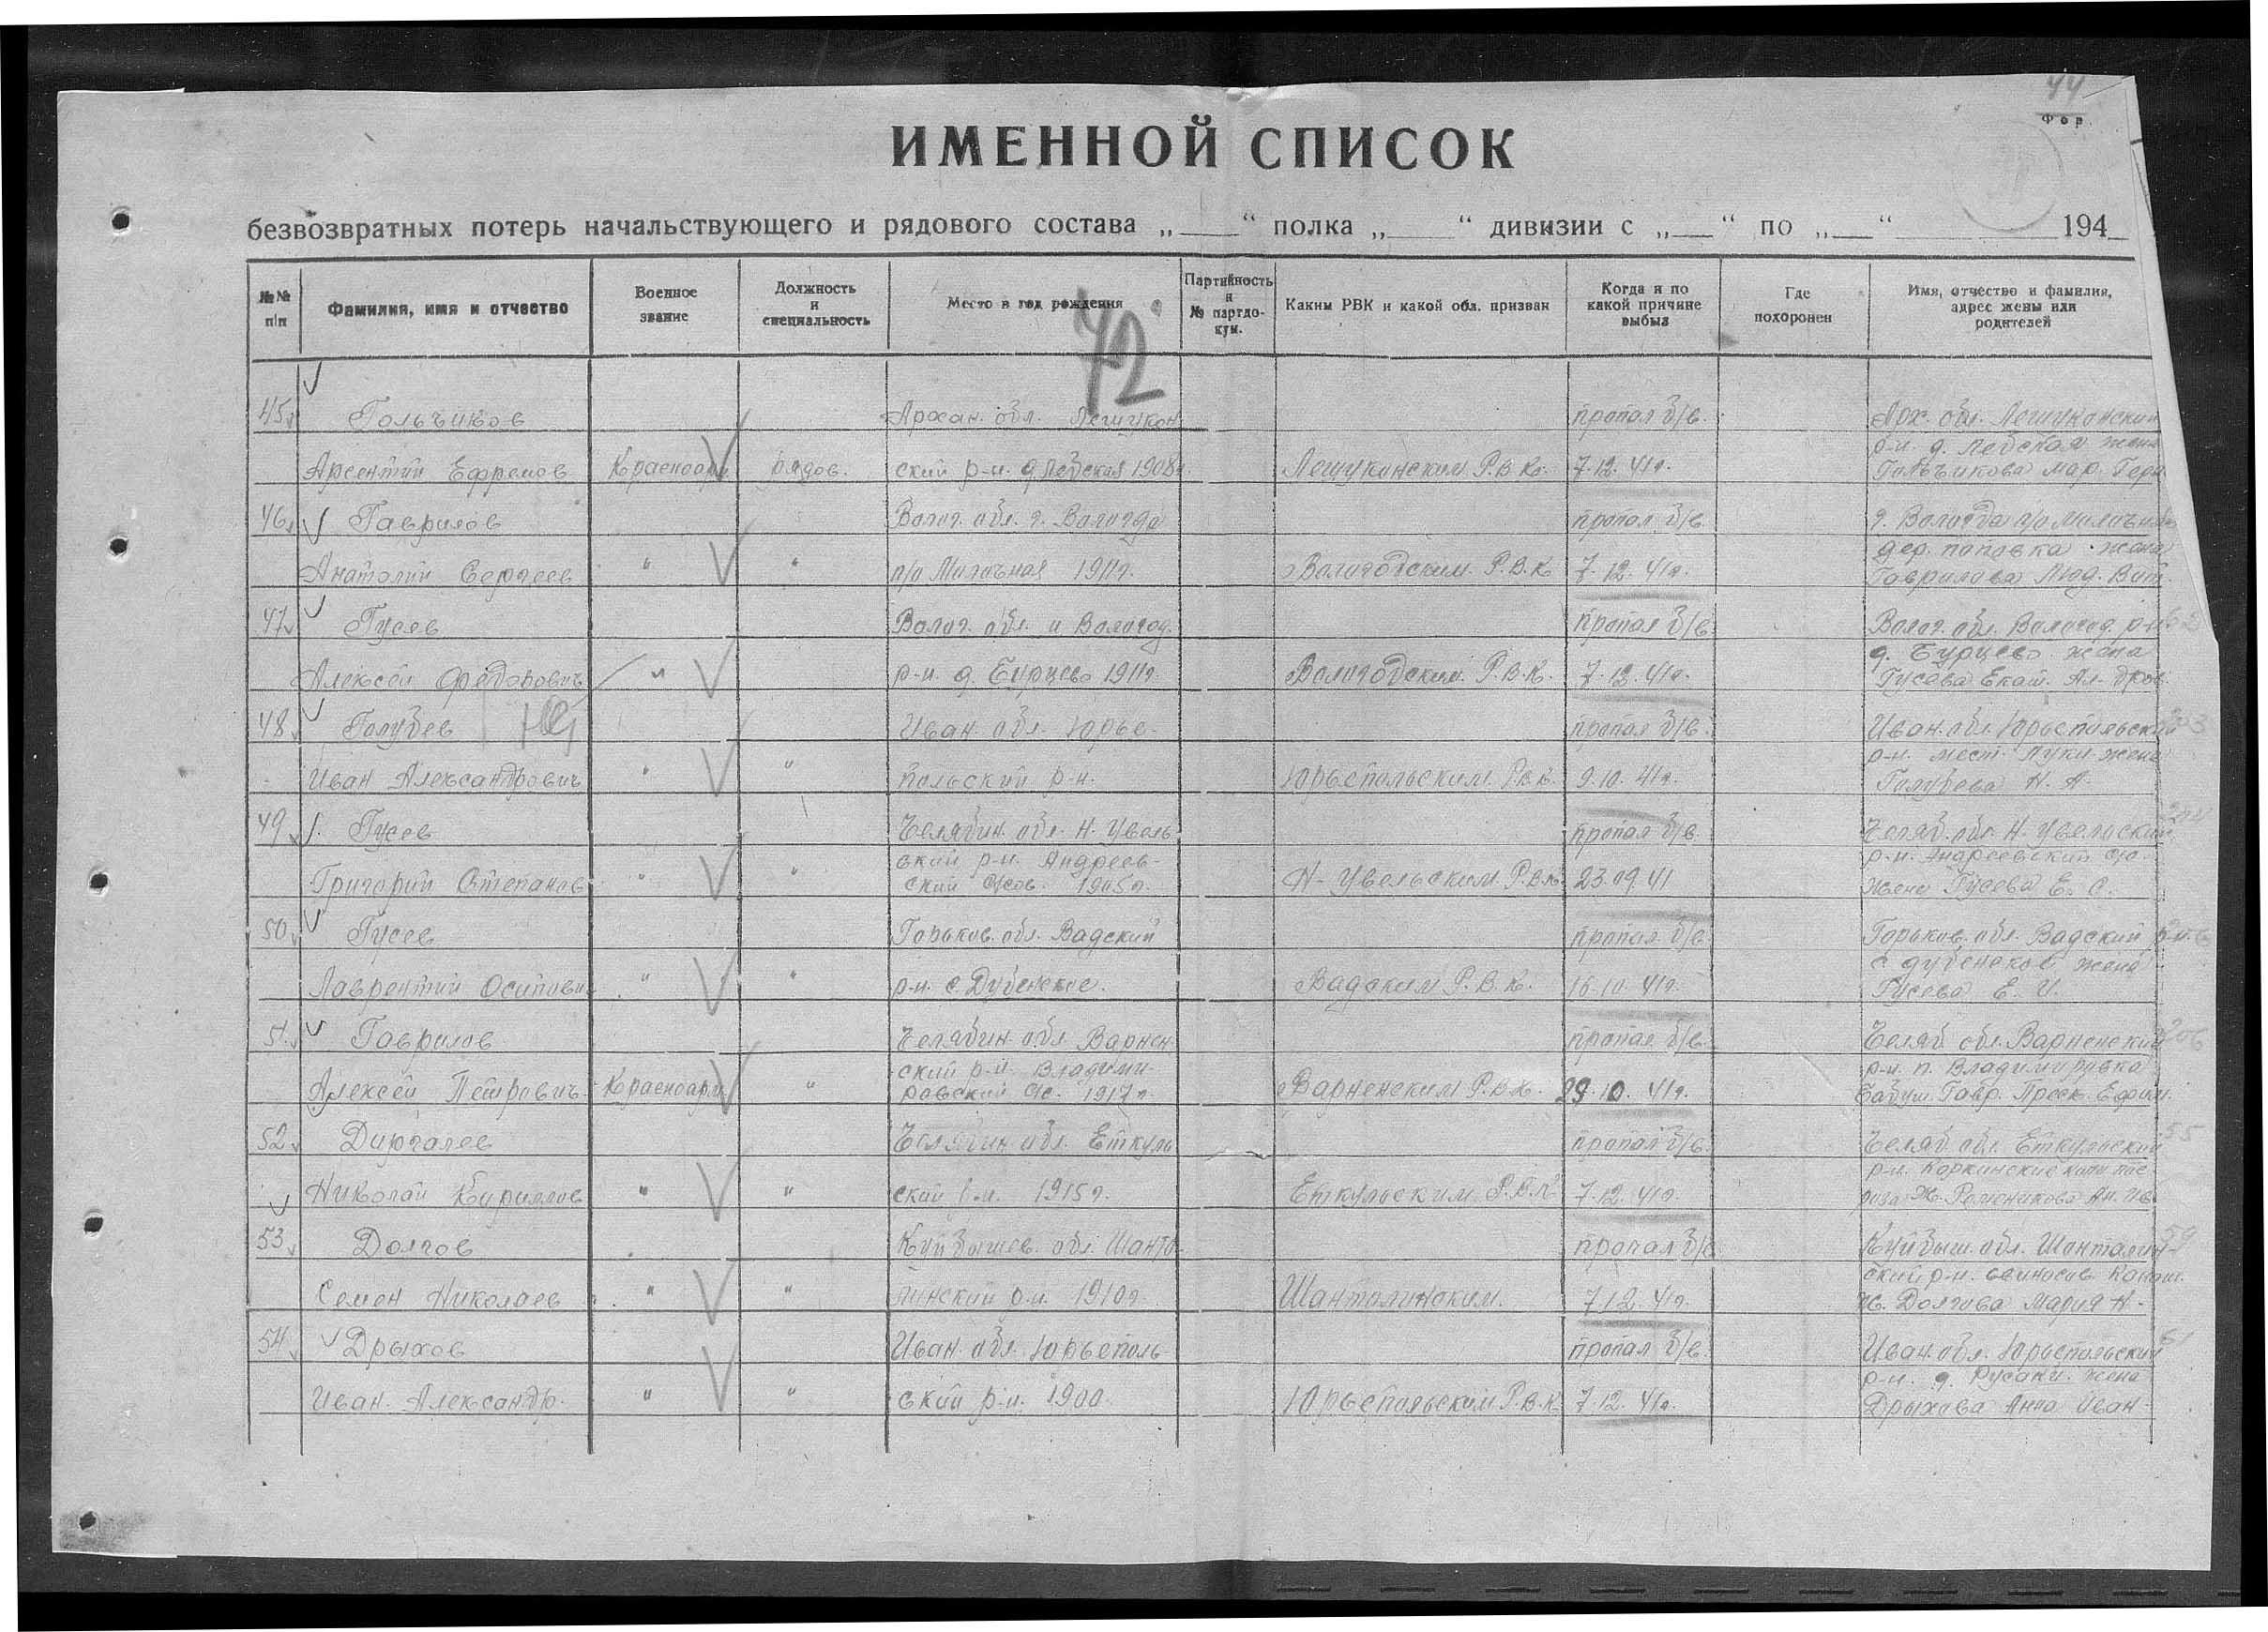 44
Фор.
ИМЕННОЙ СПИСОК
безвозвратных потерь начальствующего и рядового состава „ “ полка „ “ дивизии с „ “ по „ “ 194
№№ п/п
Фамилия, имя и отчество
Военное звание
Должность и специальность
Место и год рождения
Партийность и № партдокум.
Каким РВК и какой обл. призван
Когда и по какой причине выбыл
Где похоронен
Имя, отчество и фамилия, адрес жены или родителей
42
45 Гольчиков Архан. обл. Лешукон пропал б/в. Арх. обл. Лешуконский
р-н. д. жена
Арсентий Ефремов Красноарм рядов. ский р-н. д. 1908 Лешуконским Р.В.К. 7.12.41г. Мар.
46 Гаврилов Волог. обл. г. Вологда пропал б/в г. Вологда п/о
дер. Поповка жена
Анатолий Сергеев " " п/о Молочная 1911г. Вологодским Р.В.К 7.12.41г. Гаврилова Люд. Вит.
47 Гусев Волог. обл. и Вологод. пропал б/в. Волог. обл. Вологод. р-н
д. Бурцево жена
Алексей Федорович " р-н. д. Бурцево 1911г. Вологодским Р.В.К. 7.12.41г. Гусева Екат.
48 Голубев Иван. обл. Юрье- пропал б/в. Иван. обл. Юрьепольский
р-н. жена
Иван Александрович " " польский р-н. Юрьепольским РВК 9.10.41г. Голубева Н. А.
49 Гусев Челябин. обл. Н. Увель пропал б/в. Челяб. обл. Н. Увельский
ский р-н. Андреев- р-н. Андреевский с/с.
Григорий Степанов " " ский 1905г. Н-Увельским Р.В.К. 23.09.41 жена Гусева Е. С.
50 Гусев Горьков. обл. Вадский пропал б/в Горьков. обл. Вадский р-н.
с. жена
Лаврентий Осипович " " р-н. с. Дубенское. Вадским Р.В.К. 16.10.41г. Гусева Е. И.
51 Гаврилов Челябин. обл. Варнен пропал б/в. Челяб обл. Варненский
ский р-н. Владими- р-н. п. Владимировка
Алексей Петрович Красноарм " ровский с/с. 1917г Варненским Р.В.К. 29.10.41г. Гавр.
52 Челябин. обл. Еткуль пропал б/в. Челяб обл. Еткульский
р-н. Коркинские копи
Николай Кириллов " " ский р-н. 1915г. Еткульским Р.В.К 7.12.41г.
53 Долгов Куйбышев. обл. Шанта- пропал б/в. Куйбыш. обл. Шанталин-
ский р-н.
Семен Николаев " " линский р-н. 1910г Шанталинским. 7.12.41г. Ж. Долгова Мария Н.
54 Дрыхов Иван. обл. Юрьеполь пропал б/в. Иван. обл. Юрьепольский
р-н. д. Русаки. жена
Иван. Александр. " " ский р-н. 1900. Юрьепольским Р.В.К 7.12.41г. Дрыхова Анна Иван-